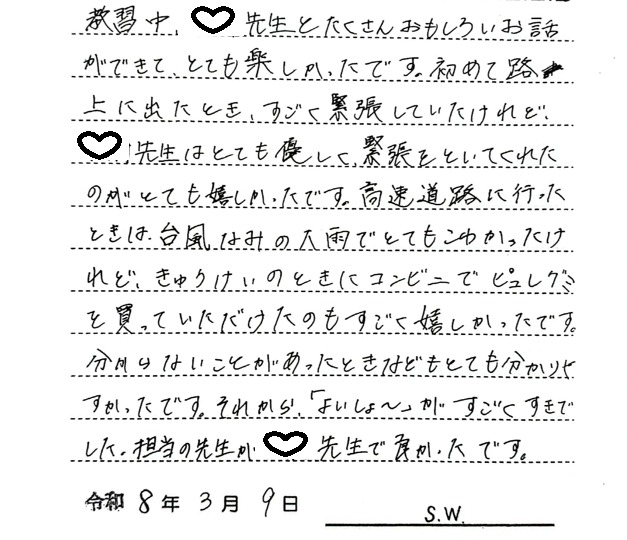 教習中、♡先生とたくさんおもしろいお話
ができて、とても楽しかったです。初めて路
上に出たとき、すごく緊張していたけれど、
♡先生はとても優しく、緊張をといてくれた
のがとても嬉しかったです。高速道路に行った
ときは、台風なみの大雨でとてもこわかったけ
れど、きゅうけいのときにコンビニでピュレグミ
を買っていただけたのもすごく嬉しかったです。
分からないことがあったときなどもとても分かりや
すかったです。それから、「よいしょ〜」がすごくすきで
した。担当の先生が♡先生で良かったです。
令和 8年 3月 9日
S.W.